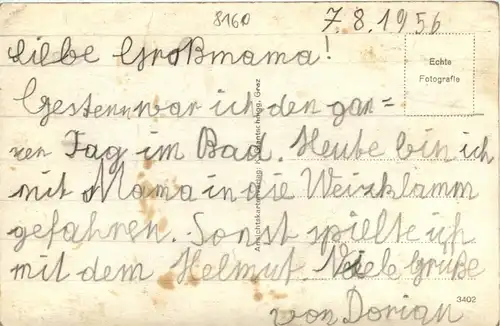 8160
7.8.1956
Liebe Großmama!
Echte
Fotografie
Gestern war ich den gan=
zen Tag im Bad. Heute bin ich
mit Mama in die Weizklamm
gefahren. Sonst spielte ich
mit dem Helmut. Viele Grüße
von Dorian
3402
Ansichtskartenverlag: Graz